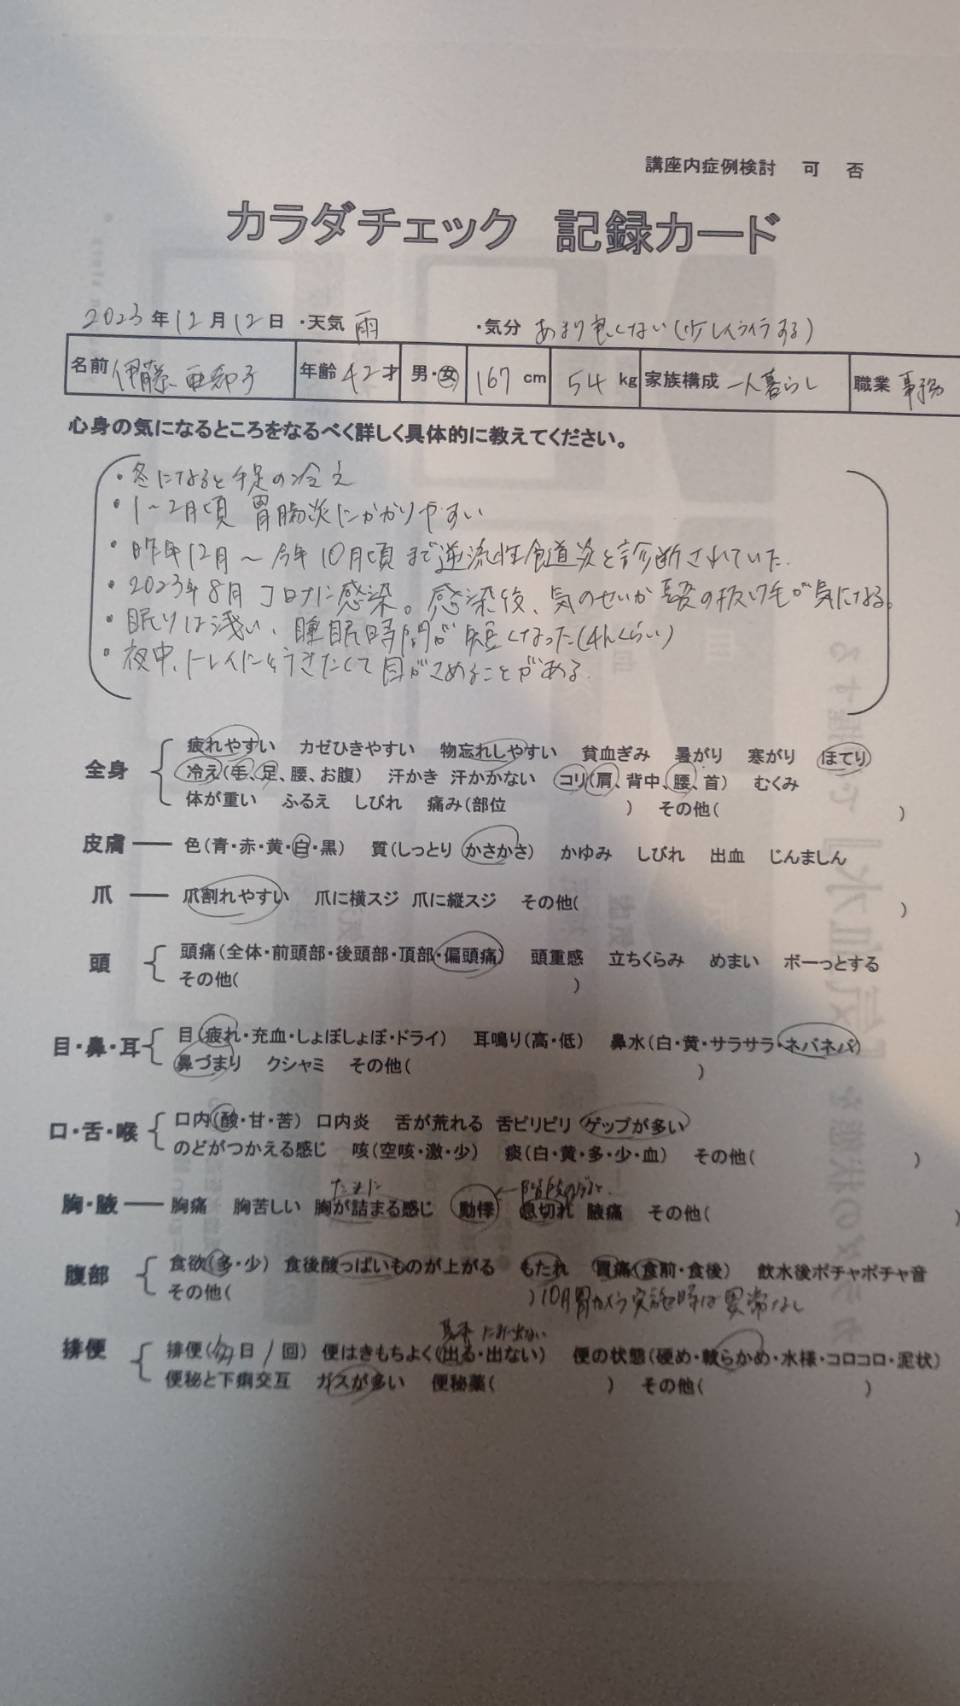 講座内症例検討 可 否
カラダチェック 記録カード
2023年12月12日 ・天気 雨 ・気分 あまり良くない(少しイライラする)
名前 伊藤 亜 子 年齢 42才 男・女 167 cm 54 kg 家族構成 一人暮らし 職業 事務
心身の気になるところをなるべく詳しく具体的に教えてください。
・冬になると手足の冷え
・1~2月頃 胃腸炎にかかりやすい
・昨年12月~今年10月頃まで逆流性食道炎と診断されていた.
・2023年8月 コロナに感染。感染後、気のせいか髪の抜け毛が気になる。
・眠りは浅い、睡眠時間が短くなった(4hくらい)
・夜中、トイレに行きたくて目がさめることがある.
全身 疲れやすい カゼひきやすい 物忘れしやすい 貧血ぎみ 暑がり 寒がり ほてり
冷え(手、足、腰、お腹) 汗かき 汗かかない コリ(肩、背中、腰、首) むくみ
体が重い ふるえ しびれ 痛み(部位 ) その他( )
皮膚 色(青・赤・黄・白・黒) 質(しっとり かさかさ) かゆみ しびれ 出血 じんましん
爪 爪割れやすい 爪に横スジ 爪に縦スジ その他( )
頭 頭痛(全体・前頭部・後頭部・頂部・偏頭痛) 頭重感 立ちくらみ めまい ボーっとする
その他( )
目・鼻・耳 目(疲れ・充血・しょぼしょぼ・ドライ) 耳鳴り(高・低) 鼻水(白・黄・サラサラ・ネバネバ)
鼻づまり クシャミ その他( )
口・舌・喉 口内(酸・甘・苦) 口内炎 舌が荒れる 舌ピリピリ ゲップが多い
のどがつかえる感じ 咳(空咳・激・少) 痰(白・黄・多・少・血) その他( )
たまに ←階段の
胸・腋 胸痛 胸苦しい 胸が詰まる感じ 動悸 息切れ 腋痛 その他( )
腹部 食欲(多・少) 食後酸っぱいものが上がる もたれ 胃痛(食前・食後) 飲水後ポチャポチャ音
その他( ) 10月胃カメラ実施時は異常なし
基本 たまに出ない
排便 排便( 日 / 回) 便はきもちよく(出る・出ない) 便の状態(硬め・軟らかめ・水様・コロコロ・泥状)
便秘と下痢交互 ガスが多い 便秘薬( ) その他( )